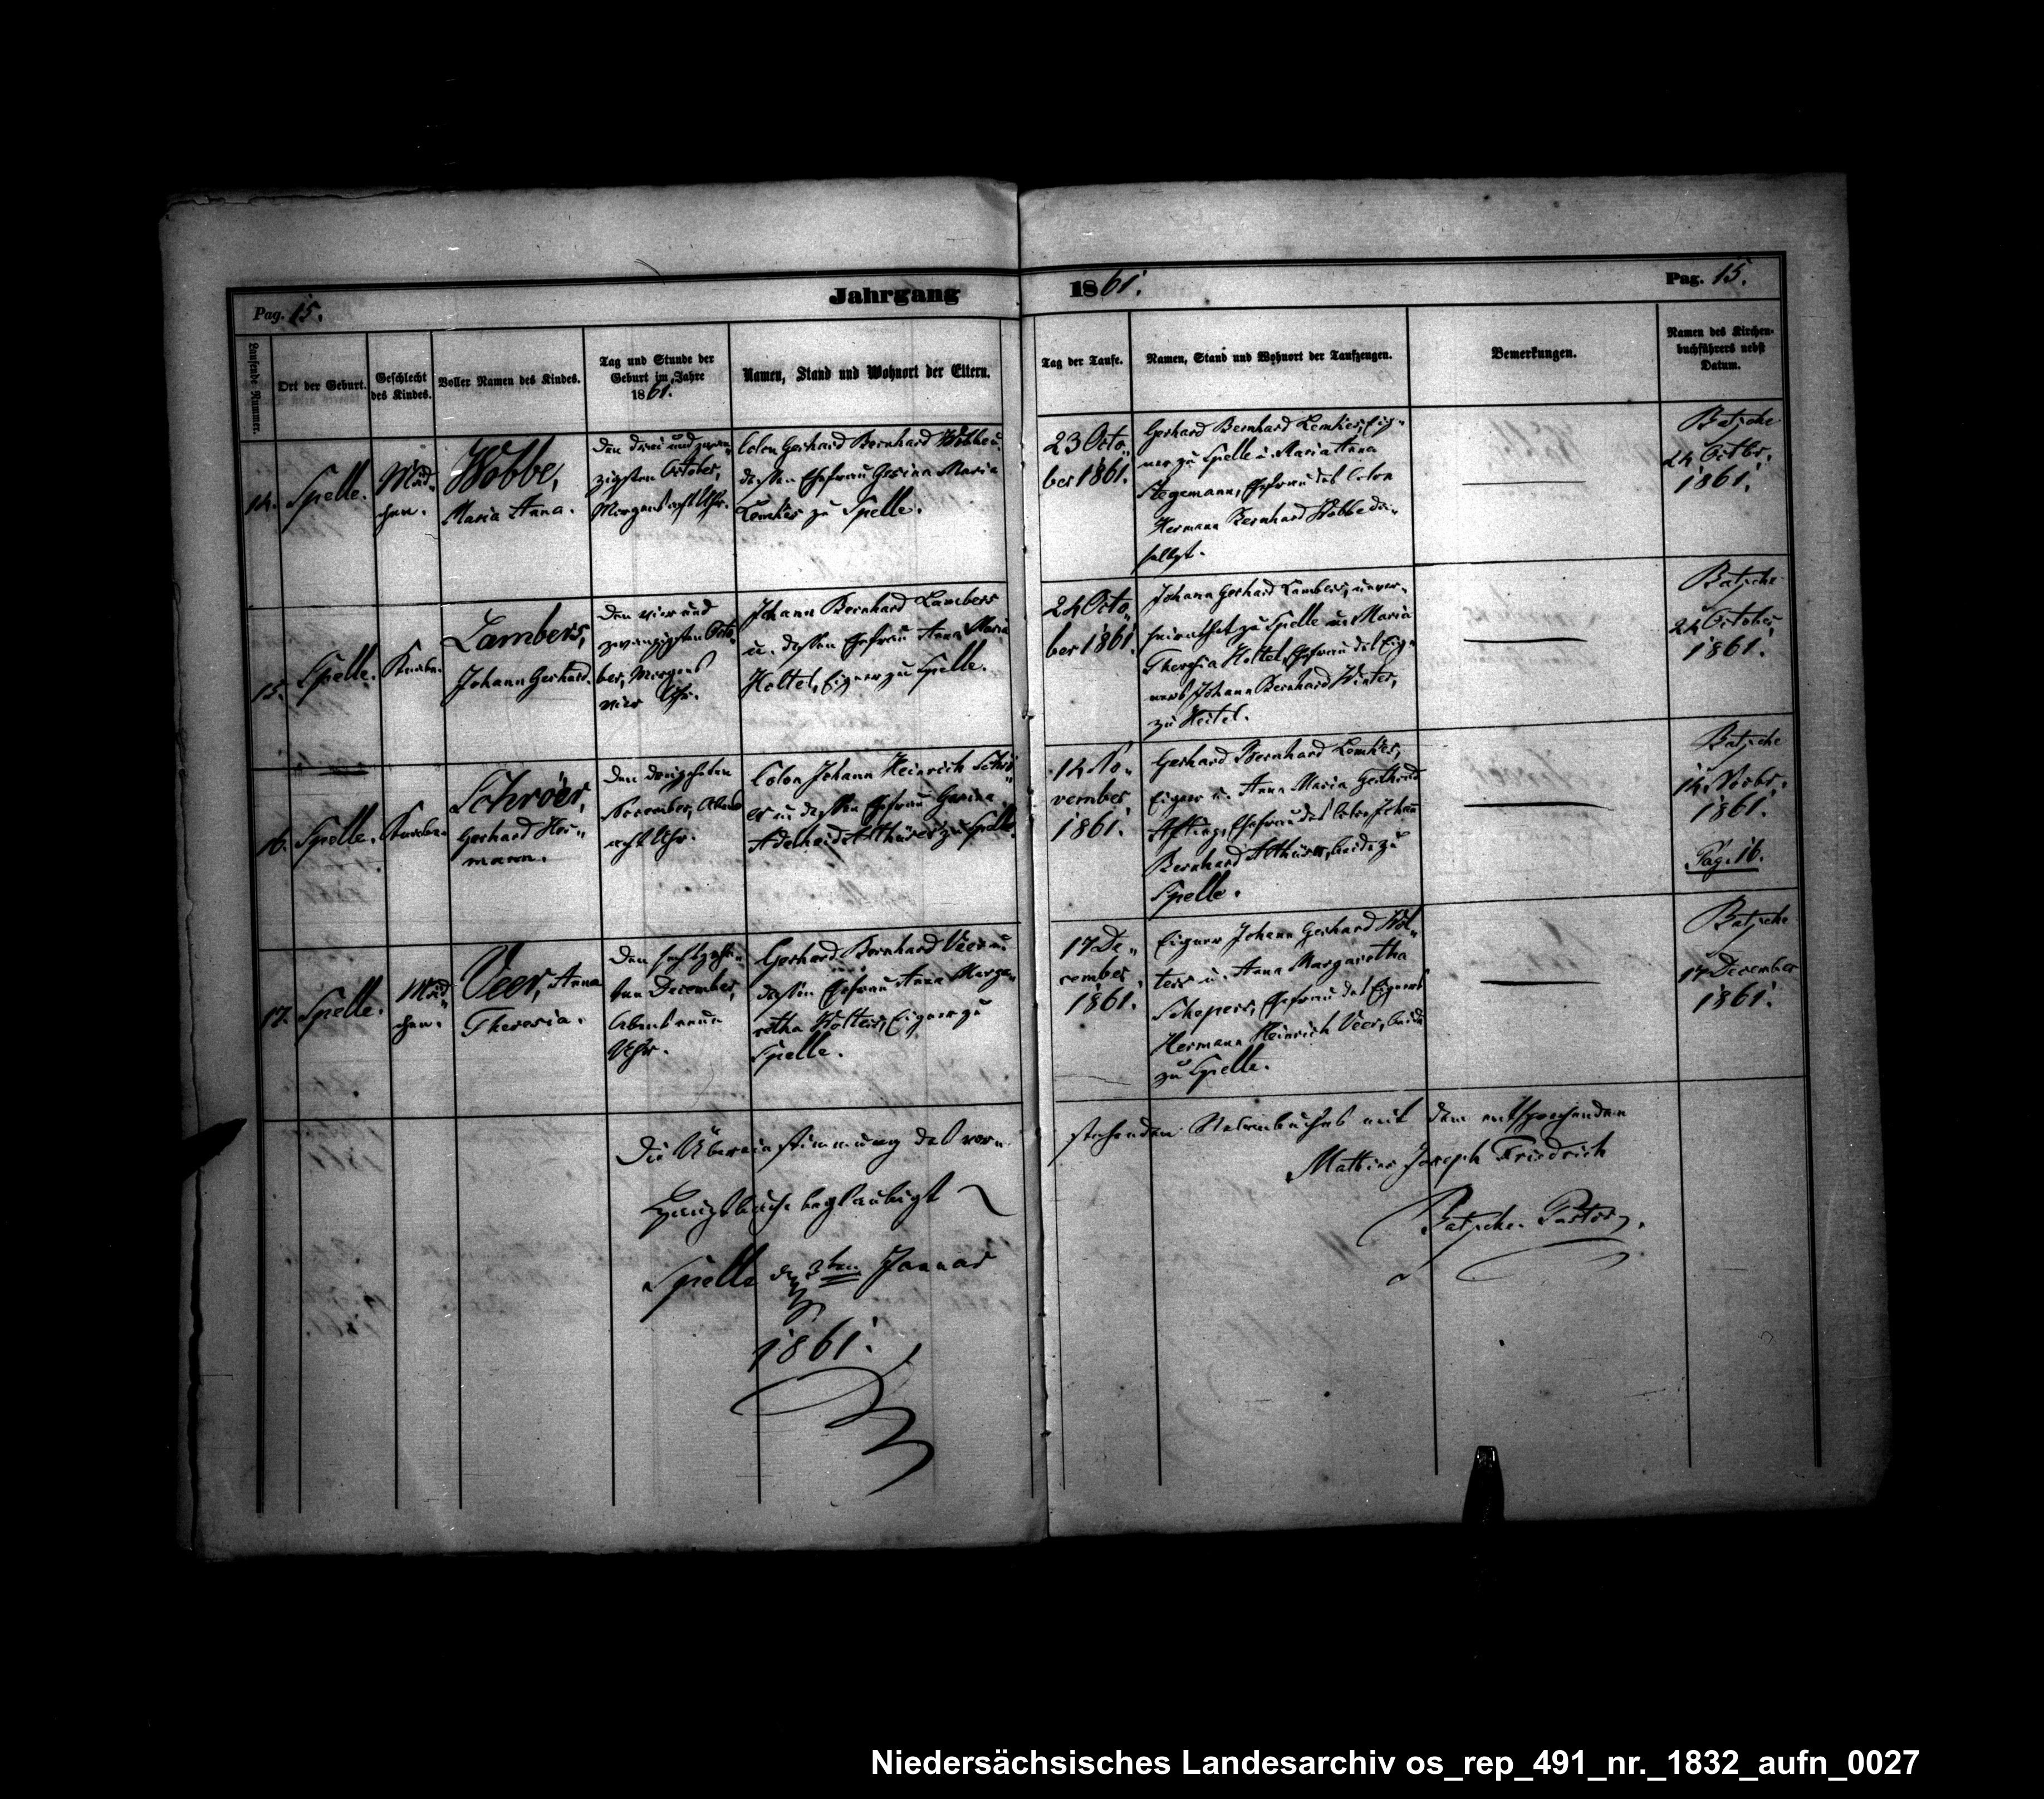 Pag. 15.
Jahrgang 1861.
Pag. 15.
Laufende Nummer.
Ort der Geburt.
Geschlecht
des Kindes.
Voller Namen des Kindes.
Tag und Stunde der
Geburt im Jahre
1861.
Namen, Stand und Wohnort der Eltern.
Tag der Taufe.
Namen, Stand und Wohnort der Taufzeugen.
Bemerkungen.
Namen des Kirchen-
buchführers nebst
Datum.
14.
Spelle.
Mäd-
chen.
Wobbe,
Maria Anna.
Den drei und zwan-
zigsten October,
Morgens acht Uhr.
Colon Gerhard Bernhard Wobbe u.
dessen Ehefrau Gesina Maria
Lemkes zu Spelle.
23 Octo-
ber 1861.
Gerhard Bernhard Lemkes, Eig-
ner zu Spelle u. Maria Anna
Stegemann, Ehefrau des Colon
Hermann Bernhard Wobbe da-
selbst.
Batsche
24 Octbr.
1861.
15.
Spelle.
Knabe.
Lambers,
Johann Gerhard.
Den vier und
zwanzigsten Octo-
ber, Morgens
vier Uhr.
Johann Bernhard Lambers
u. dessen Ehefrau Anna Maria
Holtel, Eigner zu Spelle.
24 Octo-
ber 1861.
Johann Gerhard Lambers, unver-
heirathet zu Spelle u. Maria
Theresia Holtel, Ehefrau des Eig-
ners Johann Bernhard Winter,
zu Heitel.
Batsche
24 October
1861.
16.
Spelle.
Knabe.
Schröer,
Gerhard Her-
mann.
Den dreizehnten
November, Abends
acht Uhr.
Colon Johann Heinrich Schrö-
er u. dessen Ehefrau Gesina
Adelheid Althüser zu Spelle.
14 No-
vember
1861.
Gerhard Bernhard Lemkes,
Eigner u. Anna Maria Gertrud
Ehefrau des Colon Johann
Bernhard beide zu
Spelle.
Batsche
14 Novbr.
1861.
Pag. 16.
17.
Spelle.
Mäd-
chen.
Veer, Anna
Theresia.
Den sechszehn-
ten December,
Abends neun
Uhr.
Gerhard Bernhard Veer u.
dessen Ehefrau Anna Marga-
retha Wolters, Eigner zu
Spelle.
17 De-
cember
1861.
Eigner Johann Gerhard Wol-
ters u. Anna Margaretha
Schepers, Ehefrau des Eigners
Hermann Heinrich Veer, beide
zu Spelle.
Batsche
17 December
1861.
Die Übereinstimmung des vor-
stehenden Nebenbuches mit dem entsprechenden
Hauptbuche beglaubigt
Mathias Joseph Friedrich
Batsche Pastor.
Spelle den 3ten Januar
1861.
Niedersächsisches Landesarchiv os_rep_491_nr._1832_aufn_0027